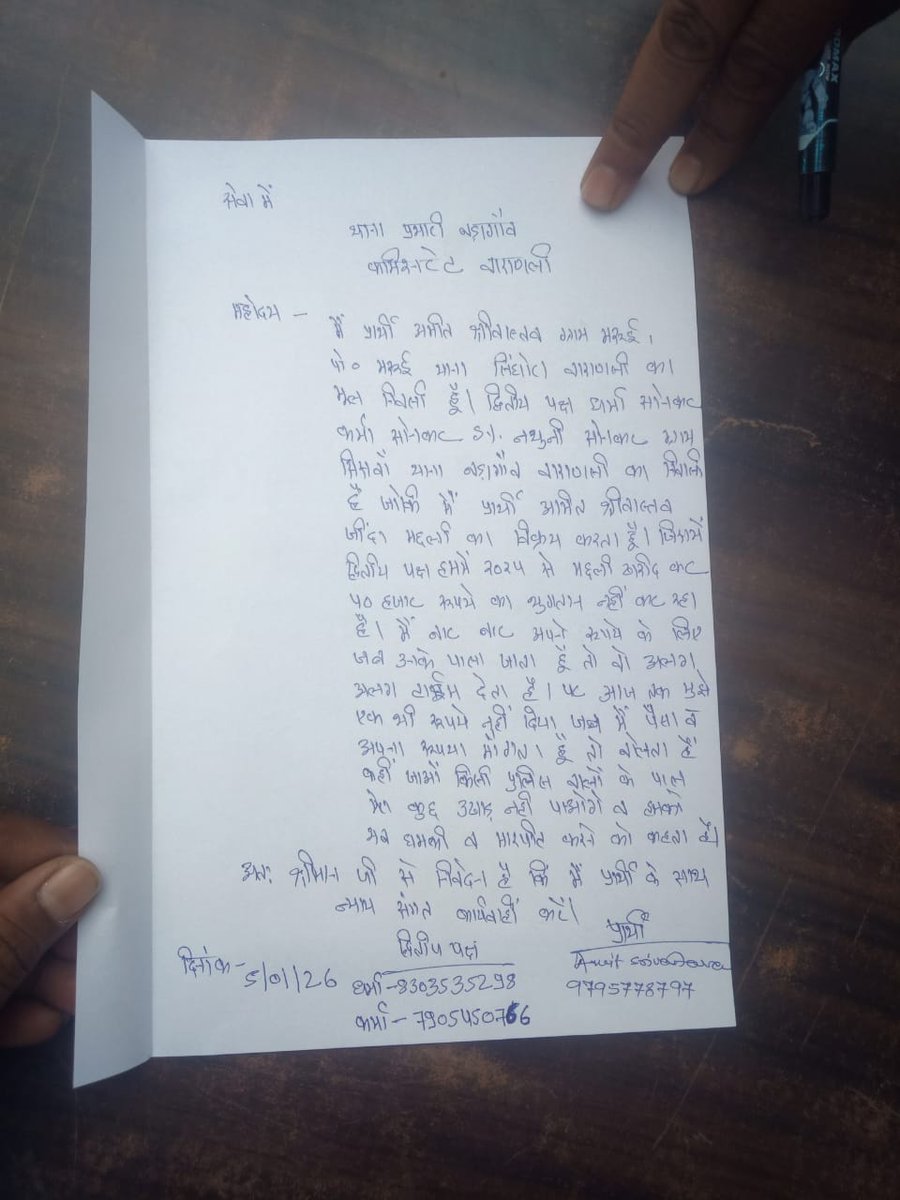 सेवा में
थाना प्रभारी बड़ागाँव
कमिश्नरेट वाराणसी
महोदय -
मैं प्रार्थी अमीत श्रीवास्तव ग्राम मरुई,
पो० मरुई थाना सिंधोरा वाराणसी का
मूल निवासी हूँ। द्वितीय पक्ष धर्मा सोनकर
कर्मा सोनकर S/. नथुनी सोनकर ग्राम
थाना बड़ागाँव वाराणसी का निवासी
है जोकी मैं प्रार्थी अमित श्रीवास्तव
जींदा मछली का विक्रय करता हूँ। जिसमें
द्वितीय पक्ष हमसे २०२५ से मछली खरीद कर
५० हजार रूपये का भुगतान नहीं कर रहा
है। मैं बार बार अपने रूपये के लिए
जब उनके पास जाता हूँ तो वो अलग
अलग टाईम देता है। पर आज तक मुझे
एक भी रूपये नहीं दिया जब मैं पैसा व
अपना रूपया मांगता हूँ तो बोलता है
कहीं जाओ किसी पुलिस वालों के पास
मेरा कुछ उखाड़ नहीं पाओगे व हमको
धमकी व मारपीट करने को कहता है।
अतः श्रीमान जी से निवेदन है कि मैं प्रार्थी के साथ
न्याय संगत कार्यवाही करें।
प्रार्थी
द्वितीय पक्ष
दिनांक - 5/01/26
धर्मा - 8303535298
Amit Srivastava
9795778797
कर्मा - 7905450766